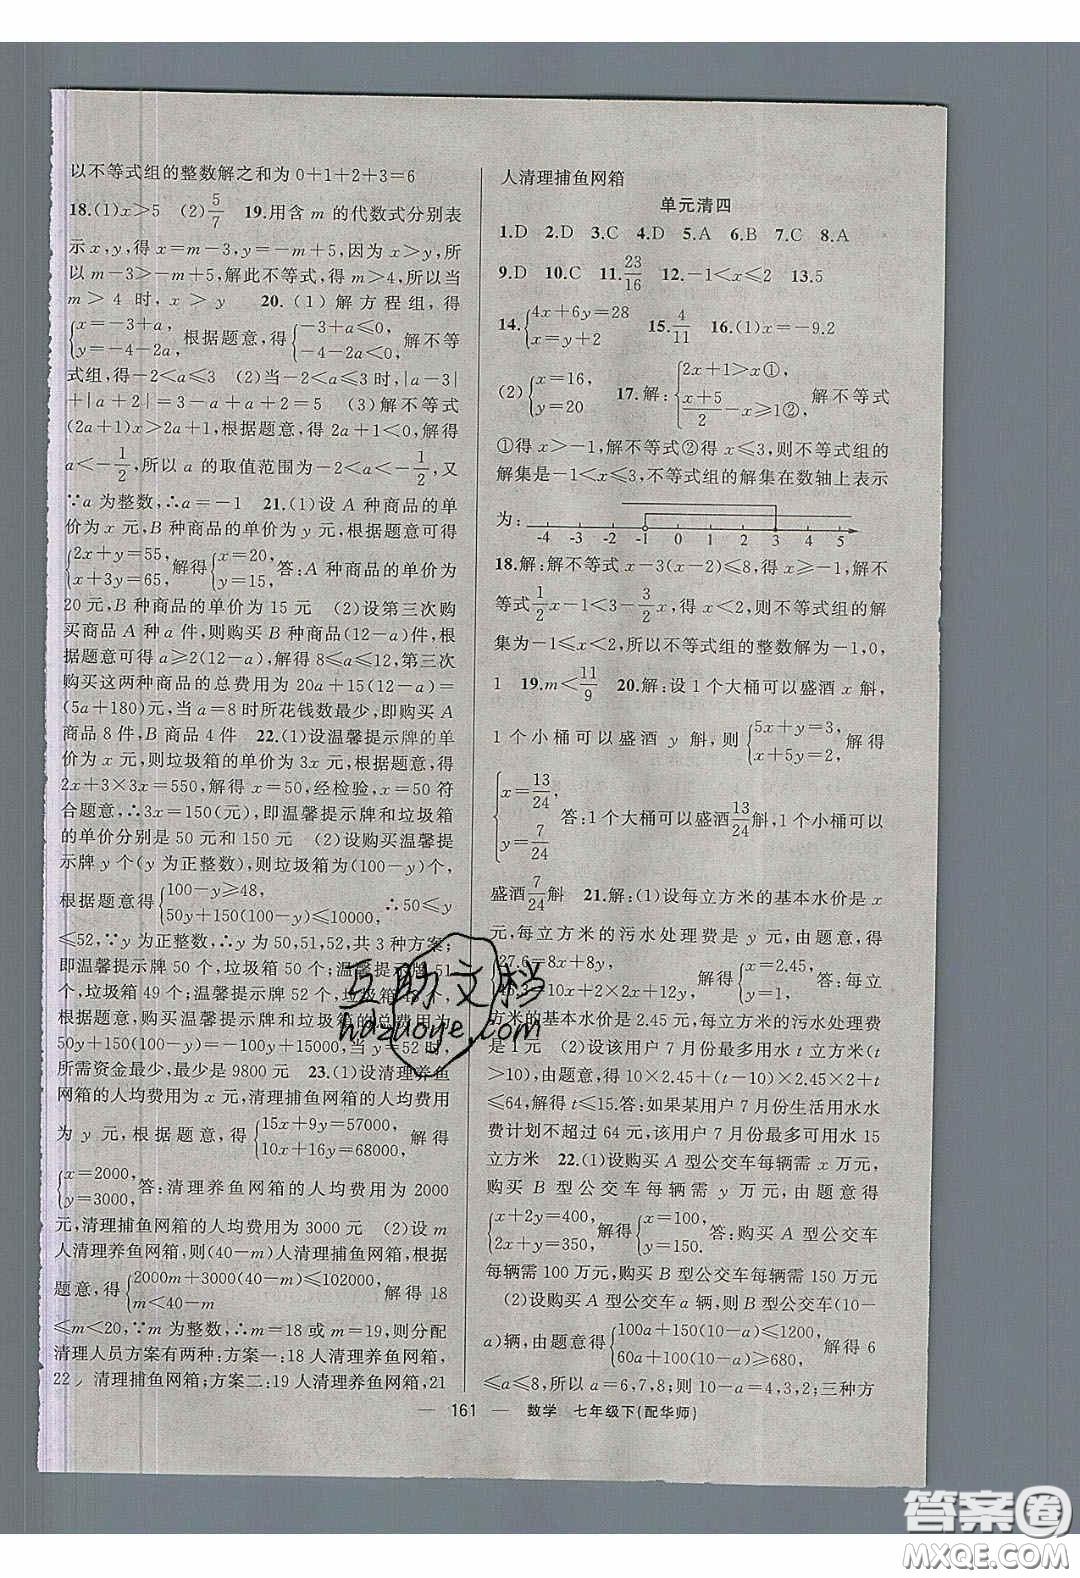 以不等式组的整数解之和为 0+1+2+3=6
18.(1)x>5 (2)5/7 19.用含 m 的代数式分别表
示 x,y,得 x=m-3,y=-m+5,因为 x>y,所
以 m-3>-m+5,解此不等式,得 m>4,所以当
m>4 时,x>y 20.(1)解方程组,得
{x=-3+a, y=-4-2a, 根据题意,得{-3+a≤0, -4-2a<0, 解不等
式组,得-2<a≤3 (2)当-2<a≤3时,|a-3|
+|a+2|=3-a+a+2=5 (3)解不等式
(2a+1)x>2a+1,根据题意,得 2a+1<0,解得
a<-1/2,所以 a 的取值范围为-2<a<-1/2,又
∵a 为整数,∴a=-1 21.(1)设 A 种商品的单
价为 x 元,B 种商品的单价为 y 元,根据题意可得
{2x+y=55, x+3y=65, 解得{x=20, y=15, 答:A 种商品的单价为
20 元,B 种商品的单价为 15 元 (2)设第三次购
买商品 A 种 a 件,则购买 B 种商品(12-a)件,根
据题意可得 a≥2(12-a),解得 8≤a≤12,第三次
购买这两种商品的总费用为 20a+15(12-a)=
(5a+180)元,当 a=8 时所花钱数最少,即购买 A
商品 8 件,B 商品 4 件 22.(1)设温馨提示牌的单
价为 x 元,则垃圾箱的单价为 3x 元,根据题意得
2x+3×3x=550,解得 x=50,经检验,x=50 符
合题意,∴3x=150(元),即温馨提示牌和垃圾箱
的单价分别是 50 元和 150 元 (2)设购买温馨提
示牌 y 个(y 为正整数),则垃圾箱为(100-y)个,
根据题意得{100-y≥48, 50y+150(100-y)≤10000, ∴50≤y
≤52,∵y 为正整数,∴y 为 50,51,52,共 3 种方案;
即温馨提示牌 50 个,垃圾箱 50 个;温馨提示牌 51
个,垃圾箱 49 个;温馨提示牌 52 个,垃圾箱 48 个,
根据题意,购买温馨提示牌和垃圾箱的总费用为
50y+150(100-y)=-100y+15000,当 y=52 时,
所需资金最少,最少是 9800 元 23.(1)设清理养鱼
网箱的人均费用为 x 元,清理捕鱼网箱的人均费用
为 y 元,根据题意,得{15x+9y=57000, 10x+16y=68000, 解得
{x=2000, y=3000, 答:清理养鱼网箱的人均费用为 2000
元,清理捕鱼网箱的人均费用为 3000 元 (2)设 m
人清理养鱼网箱,则(40-m)人清理捕鱼网箱,根据
题意,得{2000m+3000(40-m)≤102000, m<40-m 解得 18
≤m<20,∵m 为整数,∴m=18 或 m=19,则分配
清理人员方案有两种:方案一:18 人清理养鱼网箱,
22 人清理捕鱼网箱;方案二:19 人清理养鱼网箱,21
人清理捕鱼网箱
单元清四
1.D 2.D 3.C 4.D 5.A 6.B 7.C 8.A
9.D 10.C 11.23/16 12.-1<x≤2 13.5
14.{4x+6y=28 x=y+2 15.4/11 16.(1)x=-9.2
(2){x=16, y=20 17.解:{2x+1>x①, (x+5)/2-x≥1②, 解不等式
①得 x>-1,解不等式②得 x≤3,则不等式组的
解集是-1<x≤3,不等式组的解集在数轴上表示
为: -4 -3 -2 -1 0 1 2 3 4 5
18.解:解不等式 x-3(x-2)≤8,得 x≥-1,解不
等式1/2x-1<3-3/2x,得 x<2,则不等式组的解
集为-1≤x<2,所以不等式组的整数解为-1,0,
1 19.m<11/9 20.解:设 1 个大桶可以盛酒 x 斛,
1 个小桶可以盛酒 y 斛,则{5x+y=3, x+5y=2, 解得
{x=13/24, y=7/24 答:1 个大桶可以盛酒13/24斛,1 个小桶可以
盛酒7/24斛 21.解:(1)设每立方米的基本水价是 x
元,每立方米的污水处理费是 y 元,由题意,得
{27.6=8x+8y, 46.3=10x+2×2x+12y, 解得{x=2.45, y=1, 答:每立
方米的基本水价是 2.45 元,每立方米的污水处理费
是 1 元 (2)设该用户 7 月份最多用水 t 立方米(t
>10),由题意,得 10×2.45+(t-10)×4.9+t
≤64,解得 t≤15.答:如果某用户 7 月份生活用水水
费计划不超过 64 元,该用户 7 月份最多可用水 15
立方米 22.(1)设购买 A 型公交车每辆需 x 万元,
购买 B 型公交车每辆需 y 万元,由题意得
{x+2y=400, 2x+y=350, 解得{x=100, y=150. 答:购买 A 型公交车
每辆需 100 万元,购买 B 型公交车每辆需 150 万元
(2)设购买 A 型公交车 a 辆,则 B 型公交车(10-
a)辆,由题意得{100a+150(10-a)≤1200, 60a+100(10-a)≥680, 解得 6
≤a≤8,所以 a=6,7,8;则(10-a)=4,3,2;三种方
— 161 — 数学 七年级下(配华师)
互助文档
hdzuoye.com
答案圈
MXQE.COM